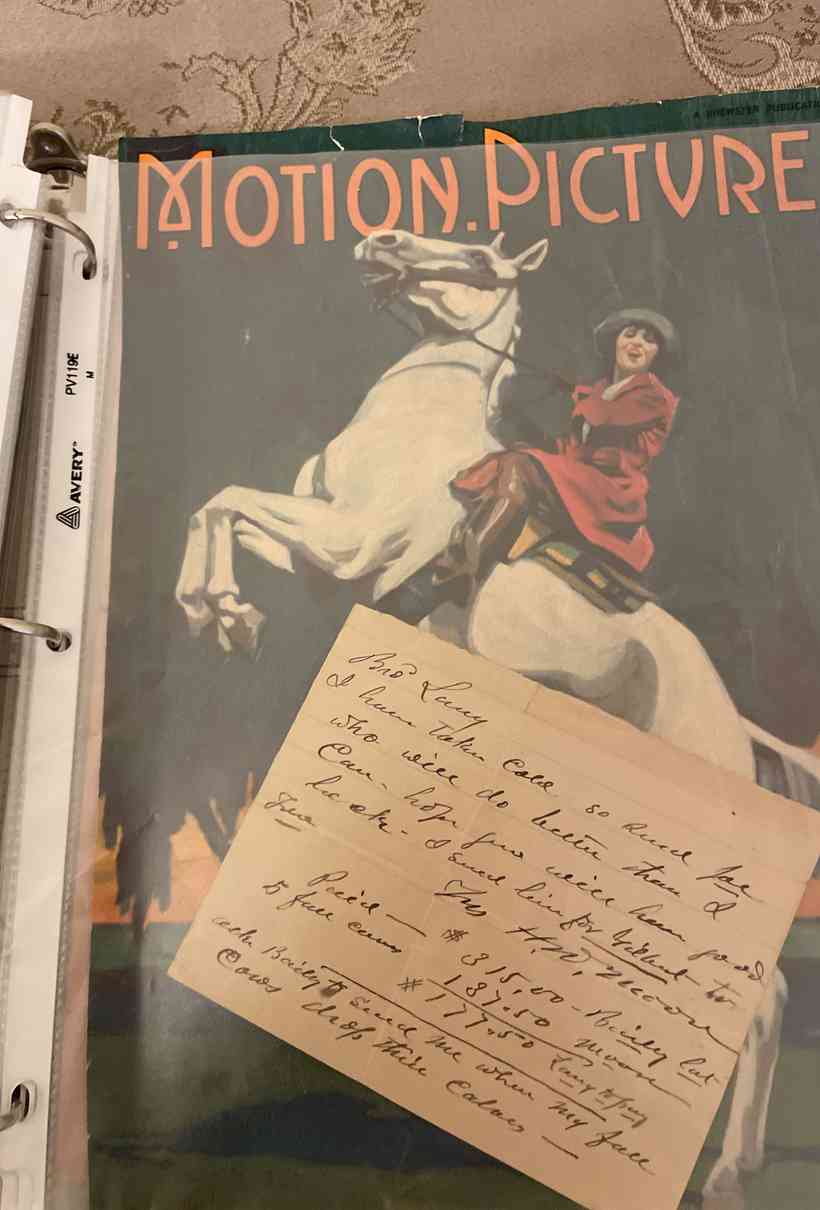 A BREWSTER PUBLICATI
MOTION PICTURE
PV119E
M
AVERY
Bro Lang
I have taken cold so send Joe
who will do better than I
Can - hope you will have good
luck - I send him for Yelland two
Two
Yrs H.W. Moore
Paid — $ 315.00 - Baily Lot
5 fall cows 137.50 Moore
$ 177.50 Lang to pay
ask Baily to send me when my fall
Cows drop their Calves —